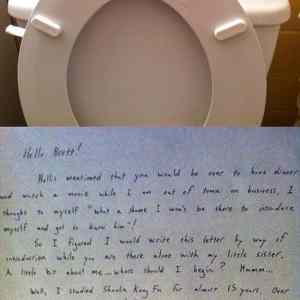 Hello Brett!
Hollis mentioned that you would be over to have dinner
and watch a movie while I am out of town on business, I
thought to myself "what a shame I won't be there to introduce
myself and get to know him"!
So I figured I would write this letter by way of
introduction while you are there alone with my little sister.
A little bit about me... where should I begin? Hmmm...
Well, I studied Shaolin Kung Fu for almost 15 years. Over